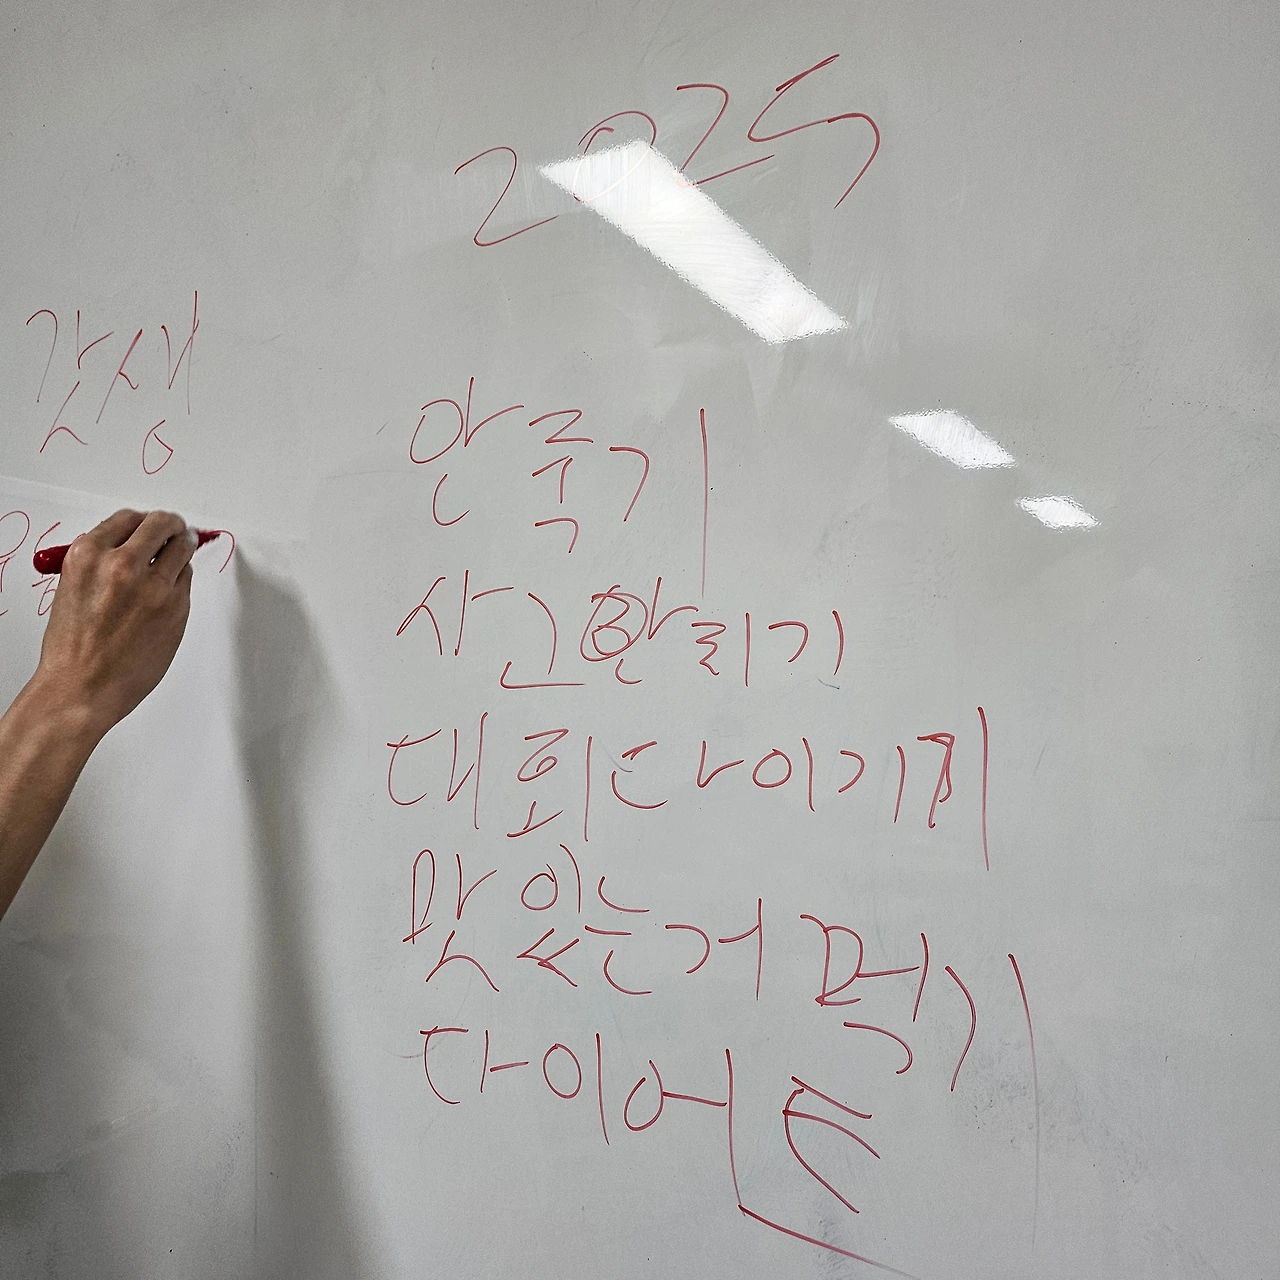 2025
갓생
안죽기
사고안치기
대회다이기기
맛있는거먹기
다이어트